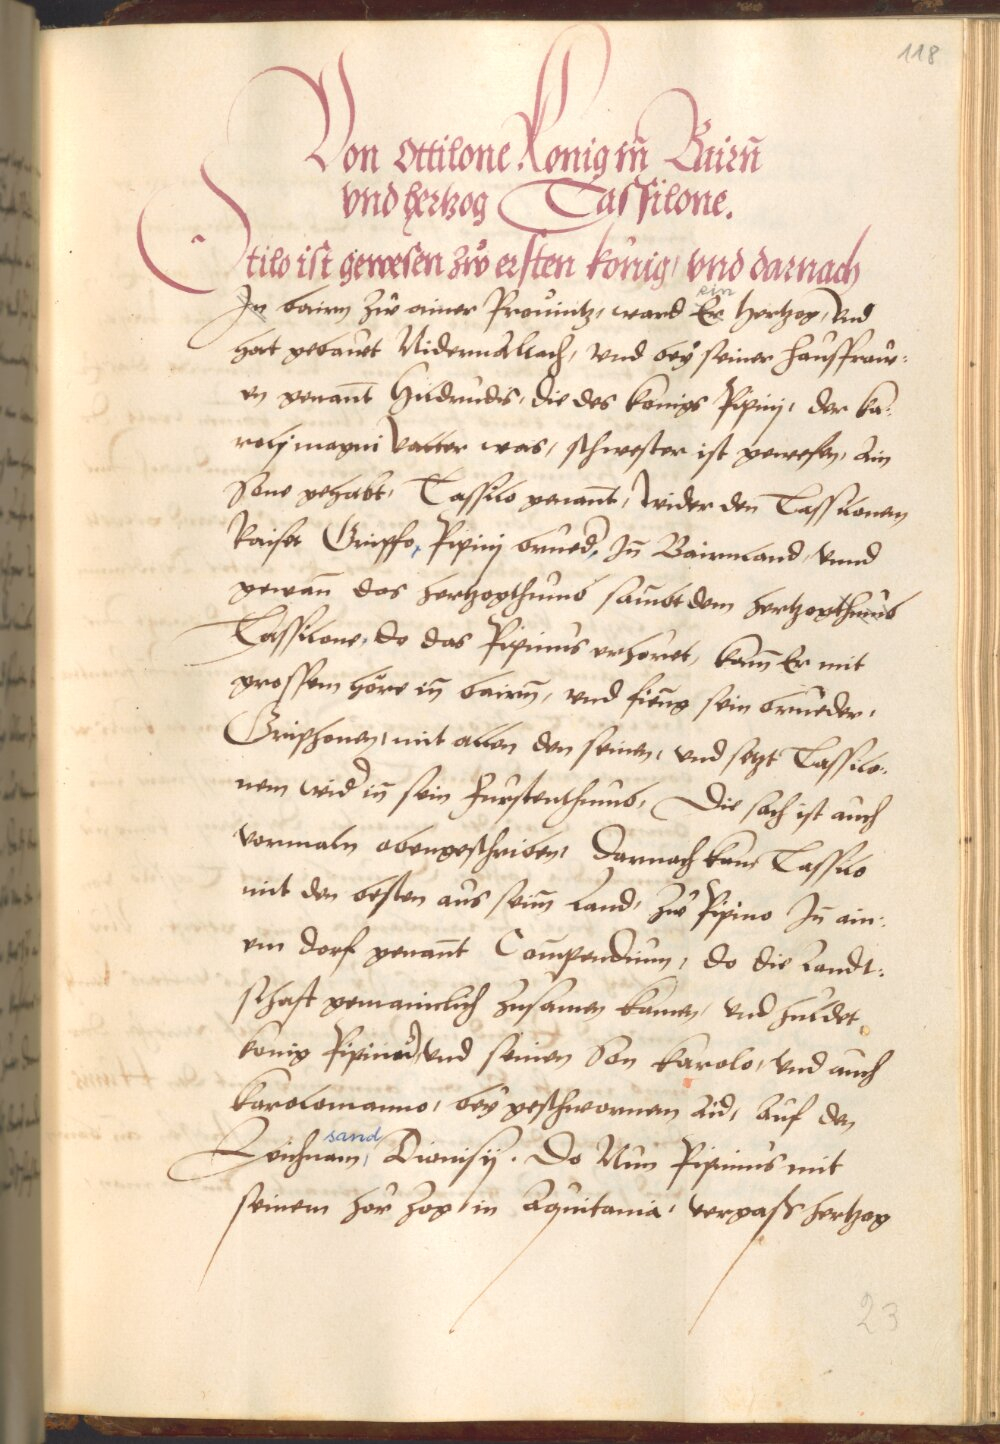 118
Von Ottilone Konig in Bairn
vnd hertzog Tassilone.
Otilo ist gewesen zw ersten konig, vnd darnach
ein
In bairn zw ainer Prouintz, ward Er hertzog, vnd
hat gebauet Nidernaltach, vnd bey seiner hausfraw-
en genant Hildrudis, die des konigs Pipinj, der ka-
rolj magni vatter was, schwester ist gewesen, ain
Sone gehabt, Tassilo genant, wider den Tassilonem
Griffo, Pipinj brued, Jn Bairnland, vnnd
gewan das hertzogthumb sambt dem hertzogthumb
Tassilone, do das Pipinus erhoret, kam Er mit
grossem höre in bairn, vnd fieng sein brueder,
Griphonen, mit allen den seinen, vnd setzt Tassilo-
nem wid in sein Furstenthumb, Die sach ist auch
vormaln obengeschriben, Darnach kam Tassilo
mit den besten aus seim Land, zw Pipino Jn ain-
em dorf genant Compendium, do die Landt-
schaft gemainclich zusamen kamen, vnd huldet
konig Pipino, vnd seinen Son karolo, vnd auch
karolomanno, bey geschwornen aid, auf den
sand
Leichnam, Dionisij. Do Nun Pipinus mit
seinem hör zog in Aquitania, vergass hertzog
23